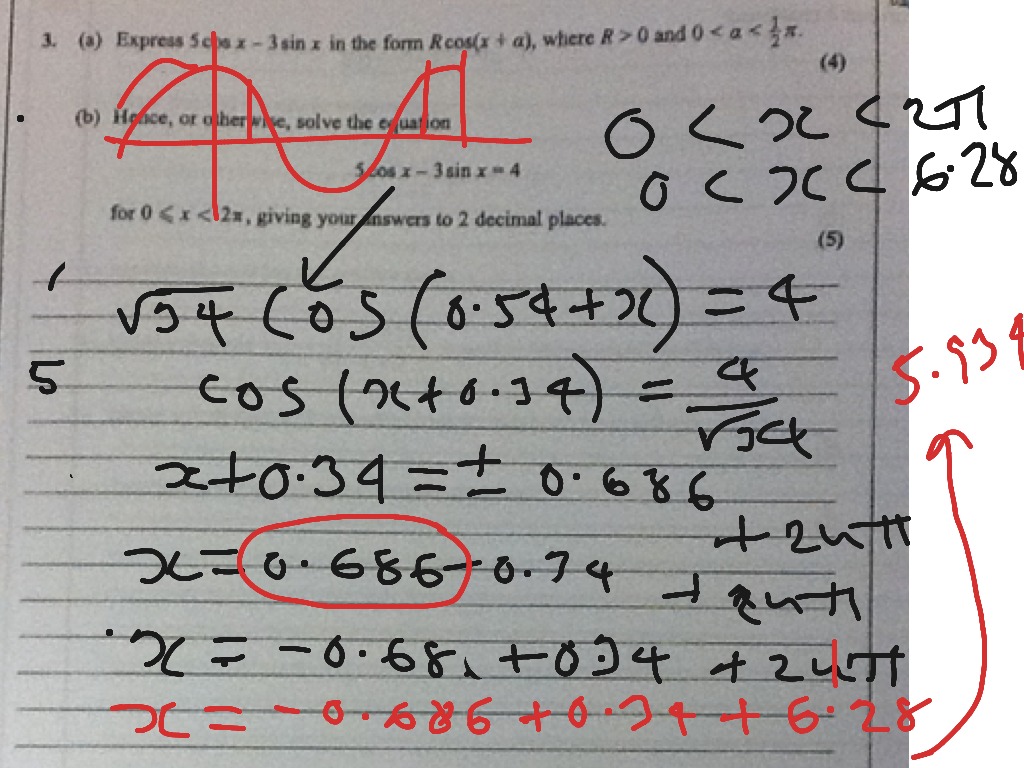 3. (a) Express 5 cos x – 3 sin x in the form R cos(x + α), where R > 0 and 0 < α < ½π.
(4)
(b) Hence, or otherwise, solve the equation
0 < x < 2π
5 cos x – 3 sin x = 4
0 < x < 6.28
for 0 ⩽ x < 2π, giving your answers to 2 decimal places.
(5)
√34 cos (0.54 + x) = 4
5.934
5 cos (x + 0.34) = 4/√34
x + 0.34 = ± 0.686
+ 2nπ
x = 0.686 - 0.34 + 2nπ
x = -0.68 + 0.34 + 2nπ
x = -0.686 + 0.34 + 6.28